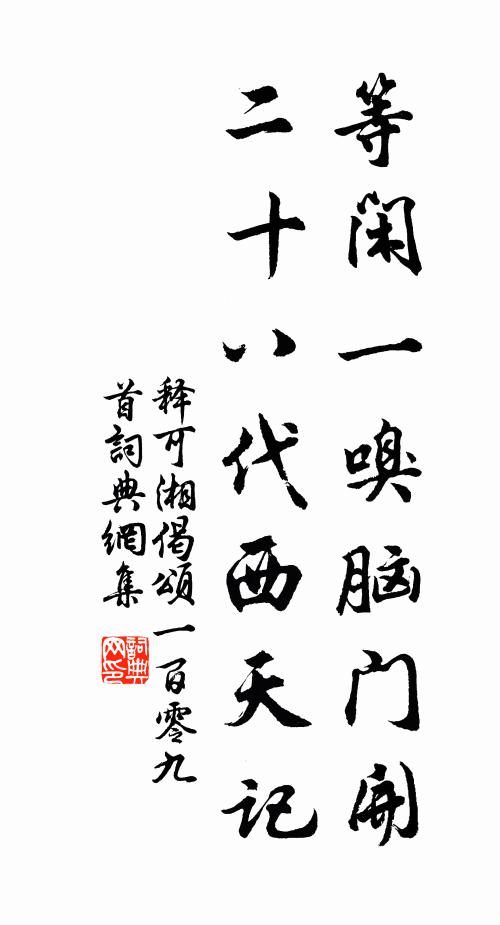 等闲一嗅脑门开
二十八代西天记
释可湘偈颂一百零九
首詞典網集
詞典
网印